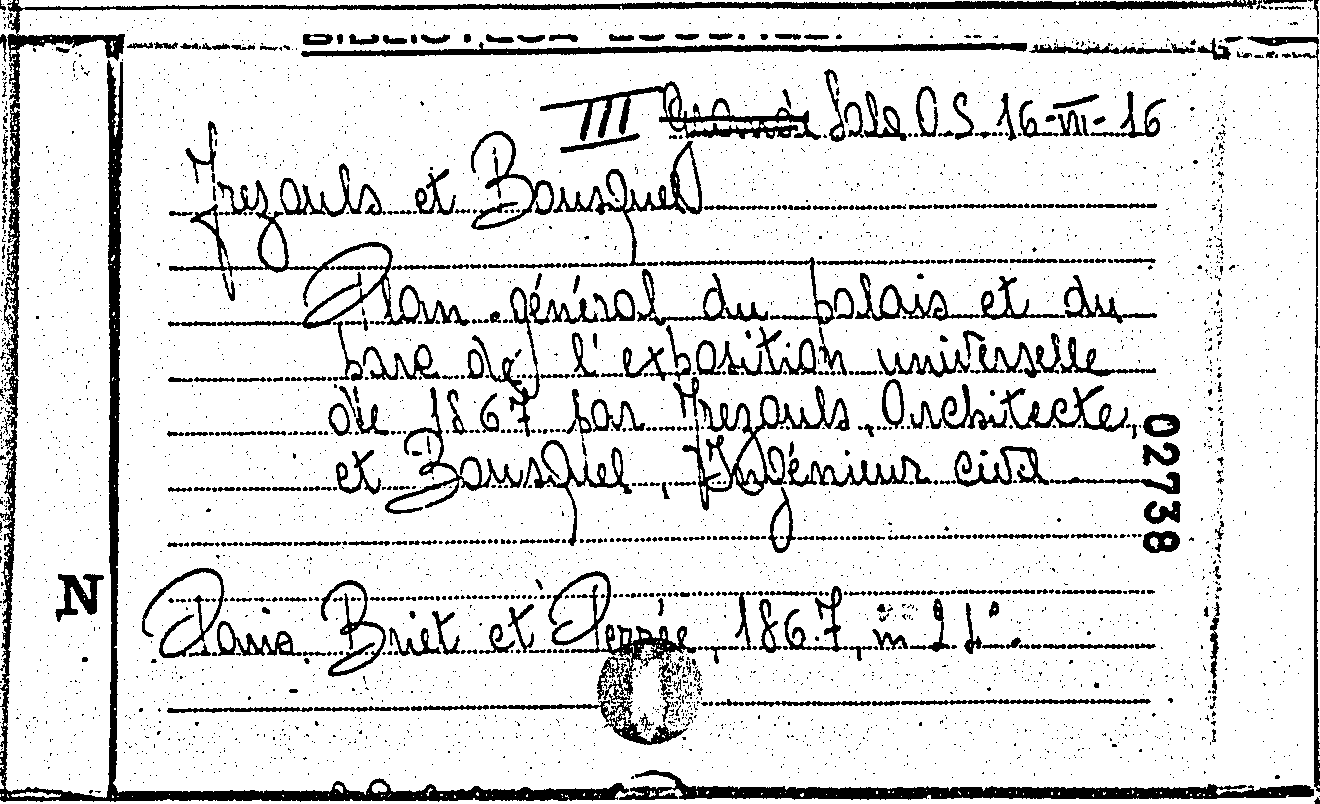 III Sala O.S. 16-VII-16
Trezauls et Bousquel
Plan général du palais et du
parc de l'exposition universelle
de 1867 par Trezauls, Architecte,
et Bousquel, Ingénieur civil
02738
N
Paris Briet et Perrée, 1867, in 2 f°.